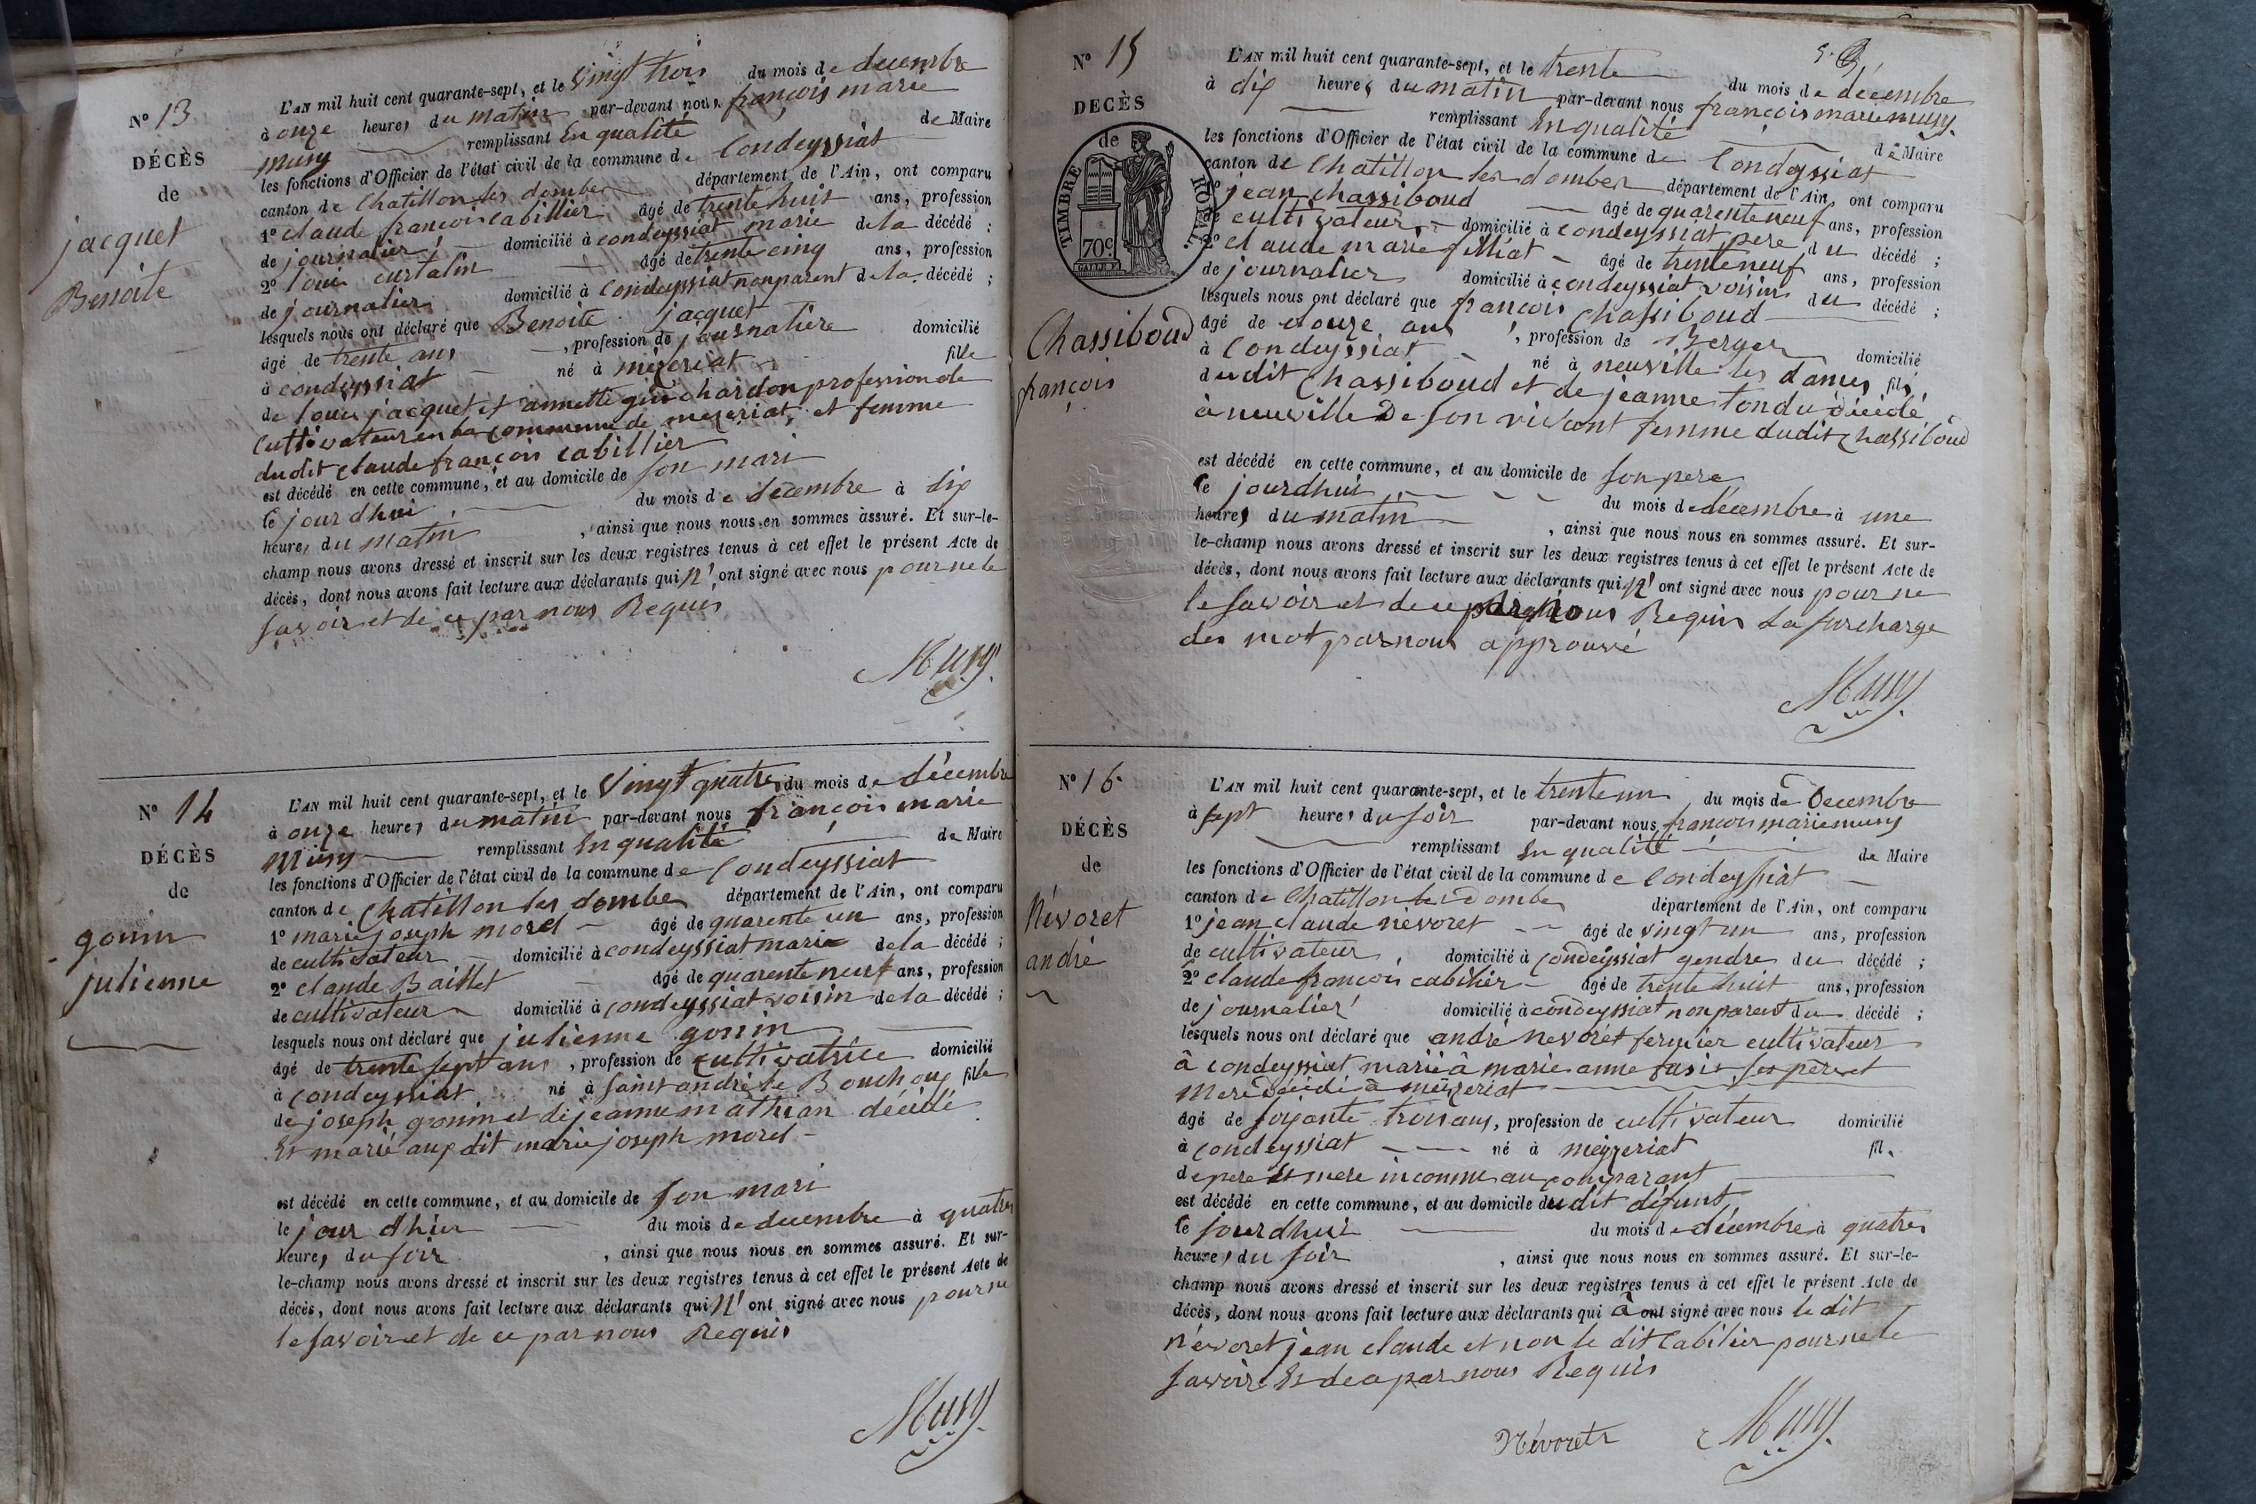 N° 13
DÉCÈS
de
jacquet
Benoite
L'AN mil huit cent quarante-sept, et le vingt trois du mois de decembre
à onze heures du matin par-devant nous françois marie
musy remplissant En qualité de Maire
les fonctions d'Officier de l'état civil de la commune de Condeyssiat
canton de Chatillon les dombes département de l'Ain, ont comparu
1° claude francois cabillier âgé de trente huit ans, profession
de journalier domicilié à condeyssiat marie de la décédé ;
2° loui curtalin âgé de trente cinq ans, profession
de journalier domicilié à Condeyssiat non parent de la décédé ;
lesquels nous ont déclaré que Benoite jacquet
âgé de trente ans, profession de journalière domicilié
à condeyssiat né à mézeriat fille
de loui jacquet et annette guichardon profession de
cultivateur en la commune de mezeriat, et femme
dudit claude françois cabillier
est décédé en cette commune, et au domicile de son mari
le jour dhui du mois de decembre à dix
heures du matin, ainsi que nous nous en sommes assuré. Et sur-le-
champ nous avons dressé et inscrit sur les deux registres tenus à cet effet le présent Acte de
décès, dont nous avons fait lecture aux déclarants qui n' ont signé avec nous pour ne le
savoir et de ce par nous Requis
Musy
N° 14
DÉCÈS
de
gonin
julienne
L'AN mil huit cent quarante-sept, et le vingt quatre du mois de décembre
à onze heures du matin par-devant nous françois marie
Musy remplissant En qualité de Maire
les fonctions d'Officier de l'état civil de la commune de Condeyssiat
canton de Chatillon les dombes département de l'Ain, ont comparu
1° marie joseph morel âgé de quarente un ans, profession
de cultivateur domicilié à condeyssiat marie de la décédé ;
2° claude Baillet âgé de quarente neuf ans, profession
de cultivateur domicilié à condeyssiat voisin de la décédé ;
lesquels nous ont déclaré que julienne gonin
âgé de trente sept ans, profession de cultivatrice domicilié
à condeyssiat né à saint andré le Bouchoux fille
de joseph gonin et de jeanne mathian décédé
Et marié aux dit marie joseph morel
est décédé en cette commune, et au domicile de son mari
le jour dhier du mois de decembre à quatre
heures du soir, ainsi que nous nous en sommes assuré. Et sur-
le-champ nous avons dressé et inscrit sur les deux registres tenus à cet effet le présent Acte de
décès, dont nous avons fait lecture aux déclarants qui n' ont signé avec nous pour ne
le savoir et de ce par nous Requis
Musy
N° 15
DECÈS
de
TIMBRE ROYAL
70c
Chassiboud
françois
L'AN mil huit cent quarante-sept, et le trente du mois de décembre
à dix heures du matin par-devant nous françois marie musy.
remplissant En qualité de Maire
les fonctions d'Officier de l'état civil de la commune de Condeyssiat
canton de Chatillon les dombes département de l'Ain, ont comparu
1° jean chassiboud âgé de quarente neuf ans, profession
de cultivateur, domicilié à condeyssiat pere du décédé ;
2° claude marie filliat âgé de trente neuf ans, profession
de journalier domicilié à condeyssiat voisin du décédé ;
lesquels nous ont déclaré que françois Chassiboud
âgé de douze ans, profession de Berger domicilié
à Condeyssiat né à neuville les dames fils
du dit Chassiboud et de jeanne tondu décédé
à neuville De son vivant femme dudit chassiboud
est décédé en cette commune, et au domicile de son pere
le jourdhui du mois de décembre à une
heures du matin, ainsi que nous nous en sommes assuré. Et sur-
le-champ nous avons dressé et inscrit sur les deux registres tenus à cet effet le présent Acte de
décès, dont nous avons fait lecture aux déclarants qui n' ont signé avec nous pour ne
le savoir et de ce par nous Requis La surcharge
des mot par nous approuvé
Musy
N° 16
DÉCÈS
de
Névoret
andré
L'AN mil huit cent quarante-sept, et le trente un du mois de Decembre
à sept heures du soir par-devant nous françois marie musy
remplissant En qualité de Maire
les fonctions d'Officier de l'état civil de la commune de Condeyssiat
canton de Chatillon les Dombes département de l'Ain, ont comparu
1° jean claude nevoret âgé de vingt un ans, profession
de cultivateur domicilié à condeyssiat gendre du décédé ;
2° claude françois cabilier âgé de trente huit ans, profession
de journalier domicilié à condeyssiat non parent du décédé ;
lesquels nous ont déclaré que andré nevoret fermier cultivateur
à condeyssiat marié à marie anne ses père et
mere décédé à mézeriat
âgé de soixante trois ans, profession de cultivateur domicilié
à condeyssiat né à mézzeriat fil.
de pere Et mere inconnu au comparant
est décédé en cette commune, et au domicile du dit défunt
le jourdhui du mois de décembre à quatre
heures du soir, ainsi que nous nous en sommes assuré. Et sur-le-
champ nous avons dressé et inscrit sur les deux registres tenus à cet effet le présent Acte de
décès, dont nous avons fait lecture aux déclarants qui à ont signé avec nous le dit
névoret jean claude et non le dit Cabilier pour ne le
savoir Et de ce par nous Requis
Névoret Musy